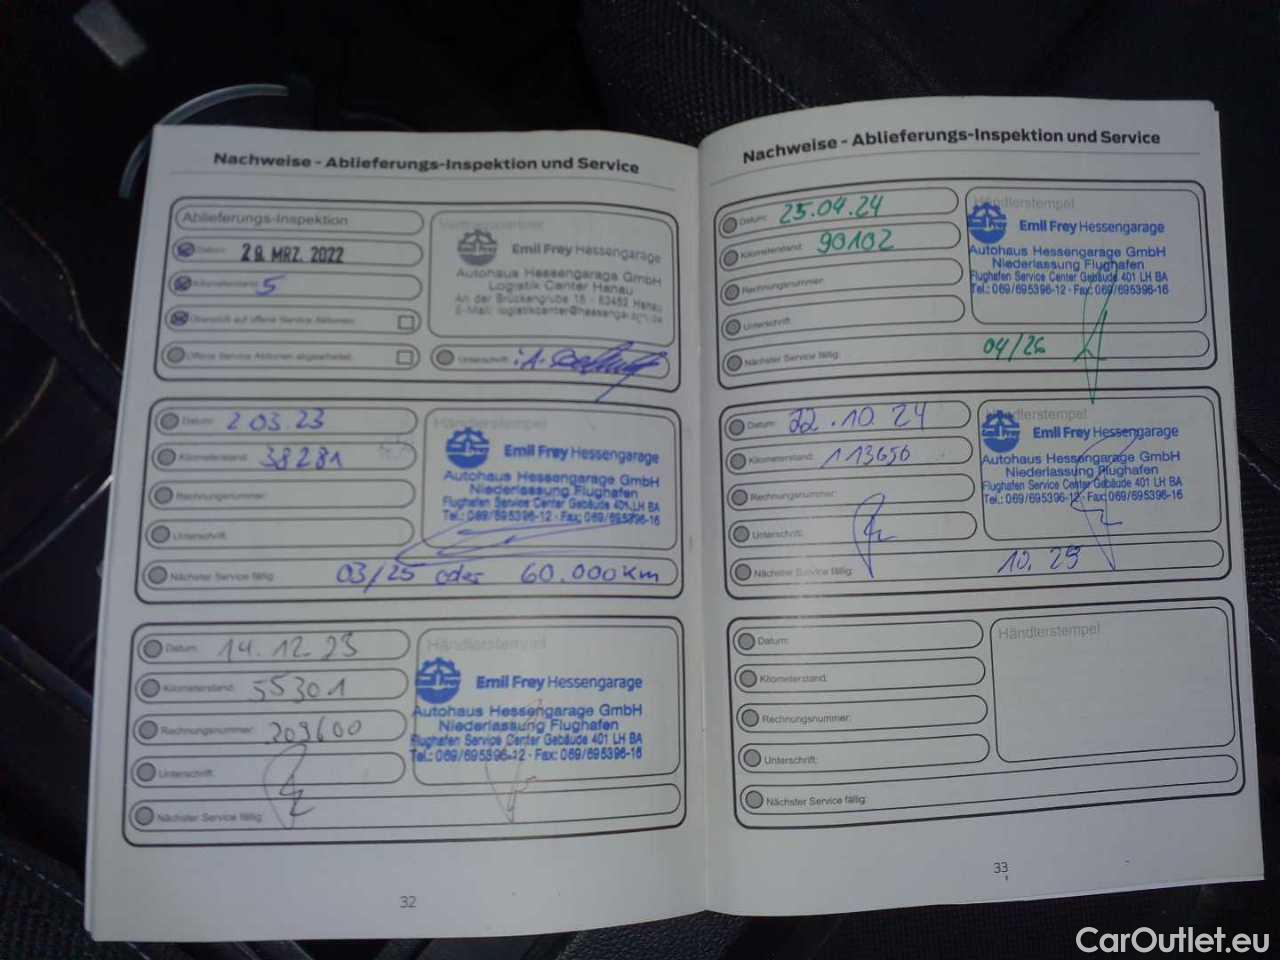 Nachweise - Ablieferungs-Inspektion und Service
Ablieferungs-Inspektion
Datum: 28. MRZ. 2022
Kilometerstand: 5
Überprüft auf offene Service Aktionen:
Offene Service Aktionen abgearbeitet:
Emil Frey Hessengarage
Autohaus Hessengarage GmbH
Logistik Center Hanau
An der Brückengrube 15 - 63452 Hanau
E-Mail: logistikcenter@hessengarage.de
Unterschrift: i.A.
Datum: 2.03.23
Kilometerstand: 38281
Rechnungsnummer:
Unterschrift:
Händlerstempel
Emil Frey Hessengarage
Autohaus Hessengarage GmbH
Niederlassung Flughafen
Flughafen Service Center Gebäude 401 LH BA
Tel.: 069/695396-12 · Fax: 069/695396-16
Nächster Service fällig: 03/25 oder 60.000km
Datum: 14.12.23
Kilometerstand: 55301
Rechnungsnummer: 209600
Unterschrift:
Händlerstempel
Emil Frey Hessengarage
Autohaus Hessengarage GmbH
Niederlassung Flughafen
Flughafen Service Center Gebäude 401 LH BA
Tel.: 069/695396-12 · Fax: 069/695396-16
Nächster Service fällig:
32
Nachweise - Ablieferungs-Inspektion und Service
Datum: 25.04.24
Kilometerstand: 90102
Rechnungsnummer:
Unterschrift:
Händlerstempel
Emil Frey Hessengarage
Autohaus Hessengarage GmbH
Niederlassung Flughafen
Flughafen Service Center Gebäude 401 LH BA
Tel.: 069/695396-12 · Fax: 069/695396-16
Nächster Service fällig: 04/26
Datum: 22.10.24
Kilometerstand: 113656
Rechnungsnummer:
Unterschrift:
Händlerstempel
Emil Frey Hessengarage
Autohaus Hessengarage GmbH
Niederlassung Flughafen
Flughafen Service Center Gebäude 401 LH BA
Tel.: 069/695396-12 · Fax: 069/695396-16
Nächster Service fällig: 10.25
Datum:
Kilometerstand:
Rechnungsnummer:
Unterschrift:
Händlerstempel
Nächster Service fällig:
33
CarOutlet.eu